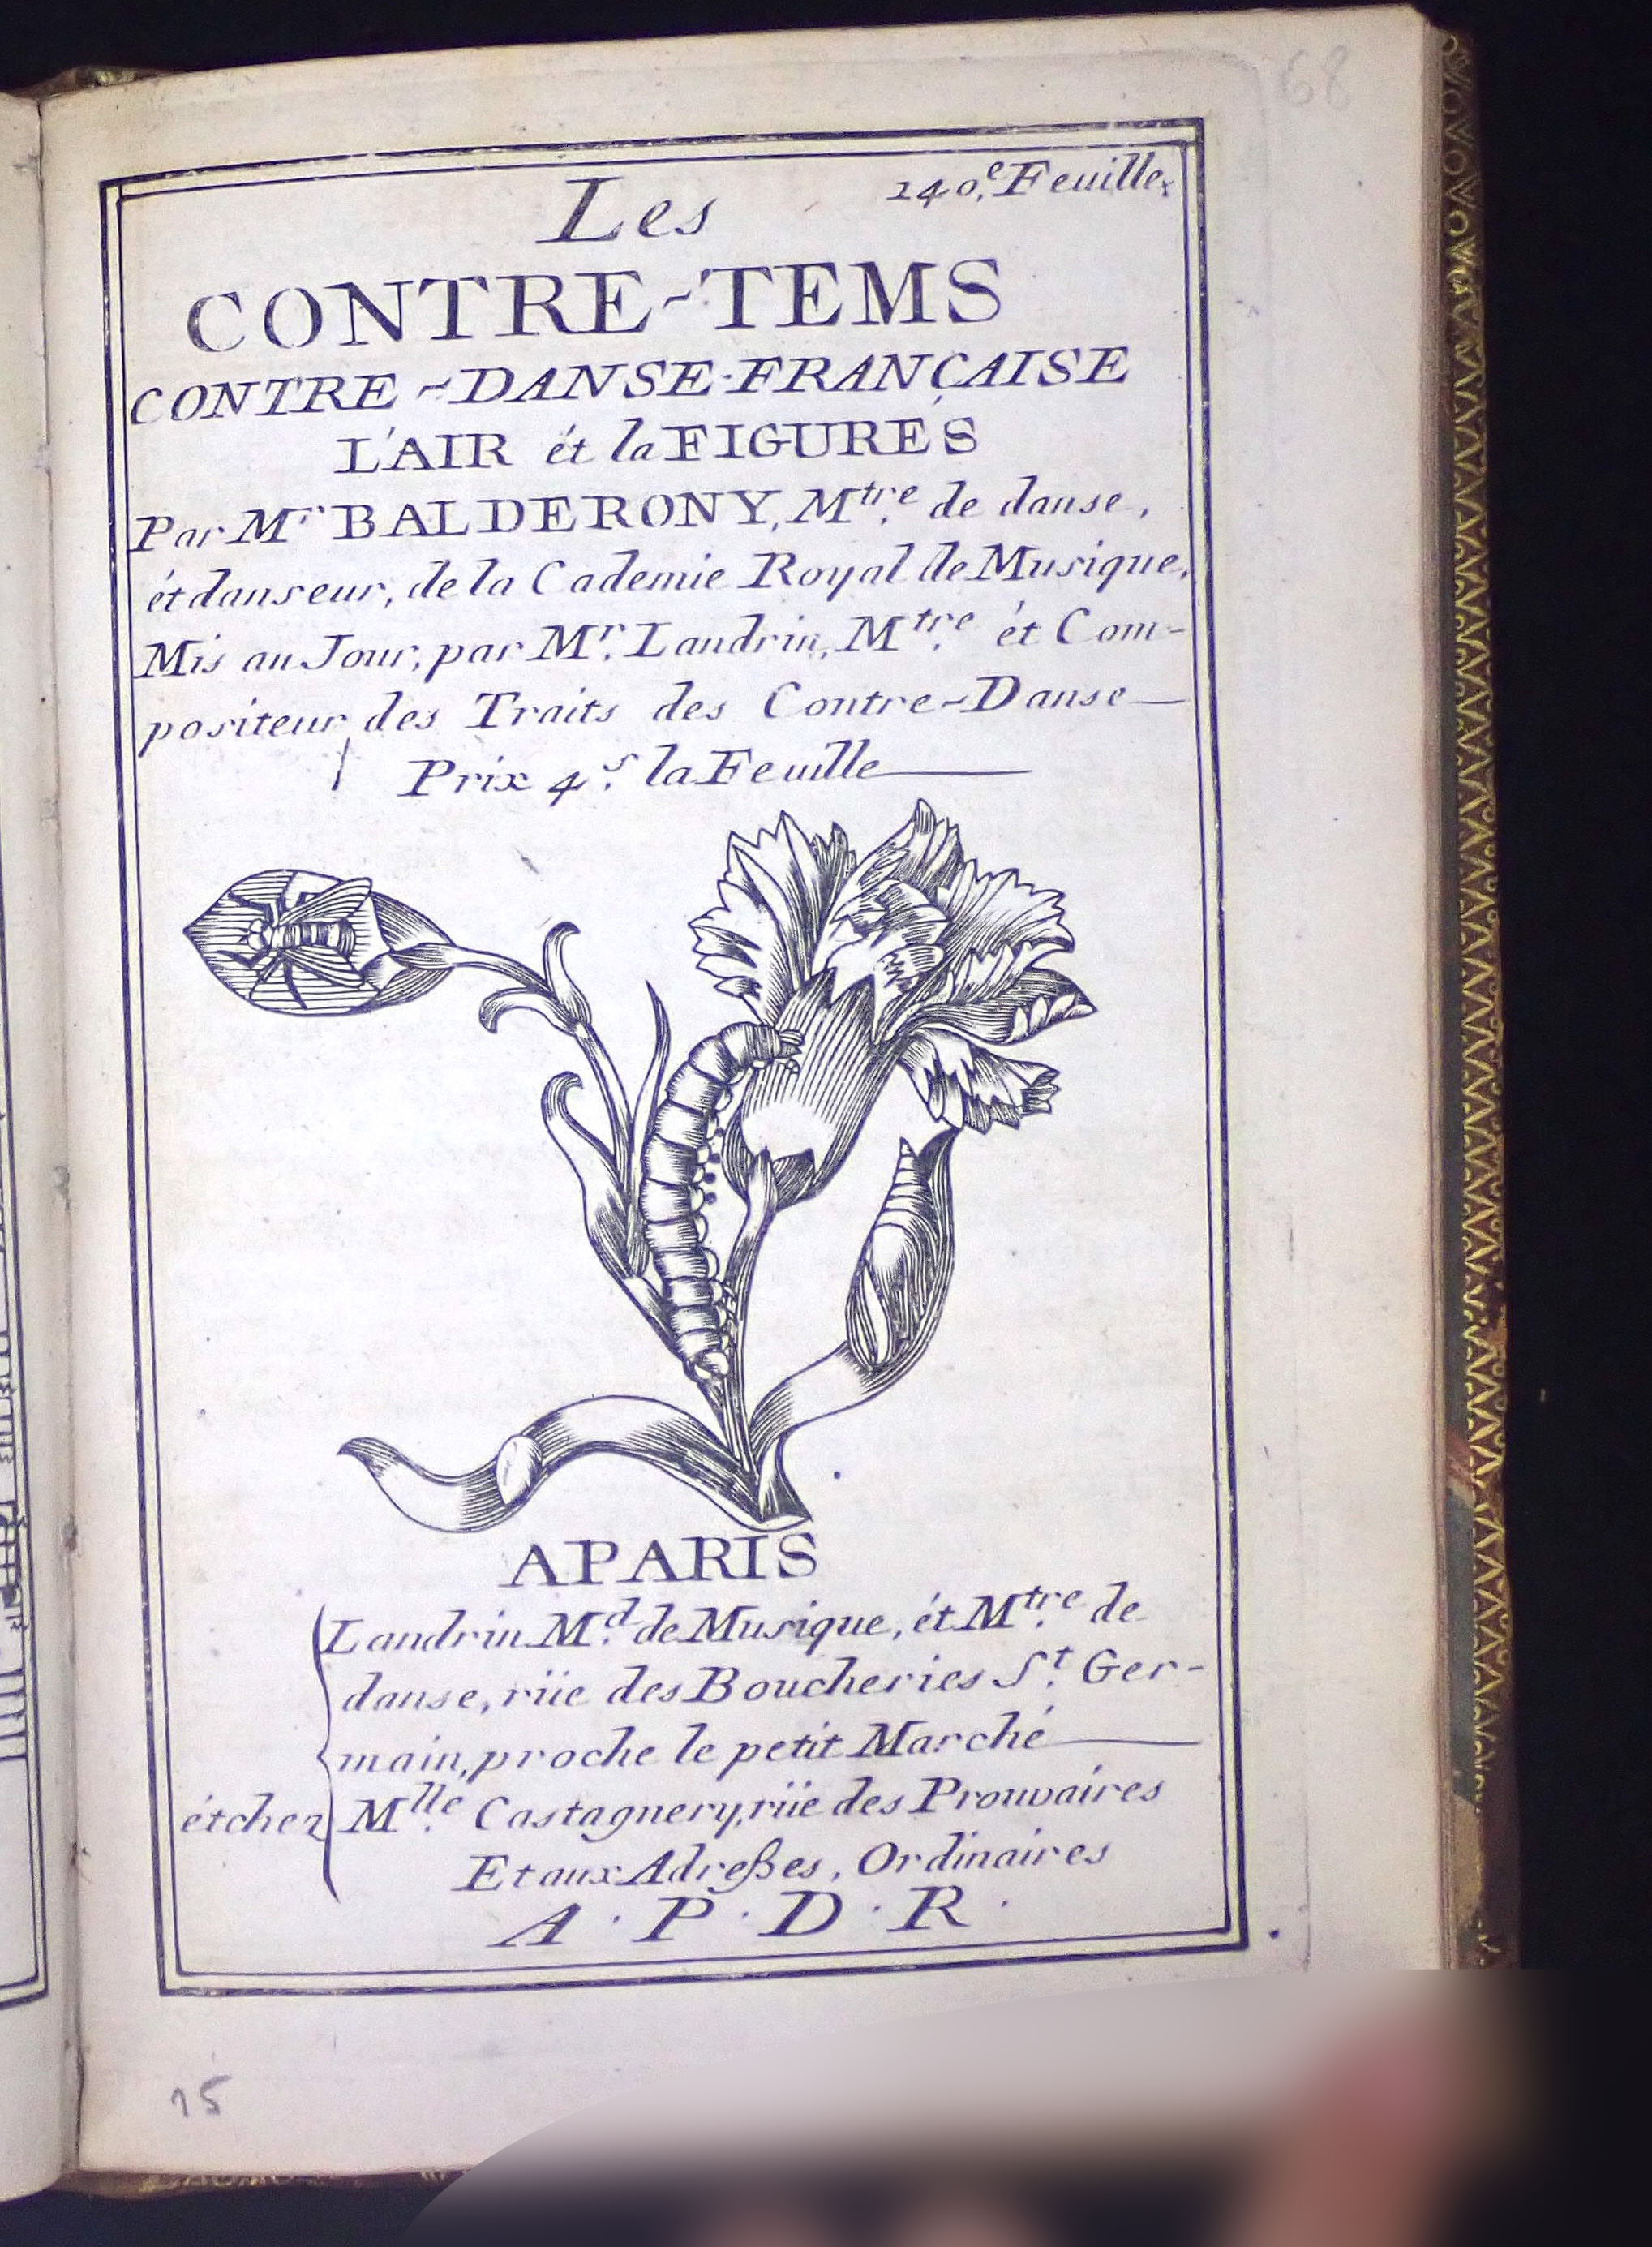 68
140.e Feuille.
Les
CONTRE-TEMS
CONTRE-DANSE FRANÇAISE
L'AIR ét la FIGURES
Par Mr BALDERONY, Mtre. de danse,
ét danseur, de la Cademie Royal de Musique,
Mis au Jour, par Mr. Landrin, Mtre. ét Com-
positeur des Traits des Contre-Danse
Prix 4.s la Feuille
A PARIS
Landrin Md. de Musique, ét Mtre. de
danse, rüe des Boucheries St. Ger-
main, proche le petit Marché
ét chez Mlle. Castagnery, rüe des Prouvaires
Et aux Adreßes, Ordinaires
A . P . D . R .
15